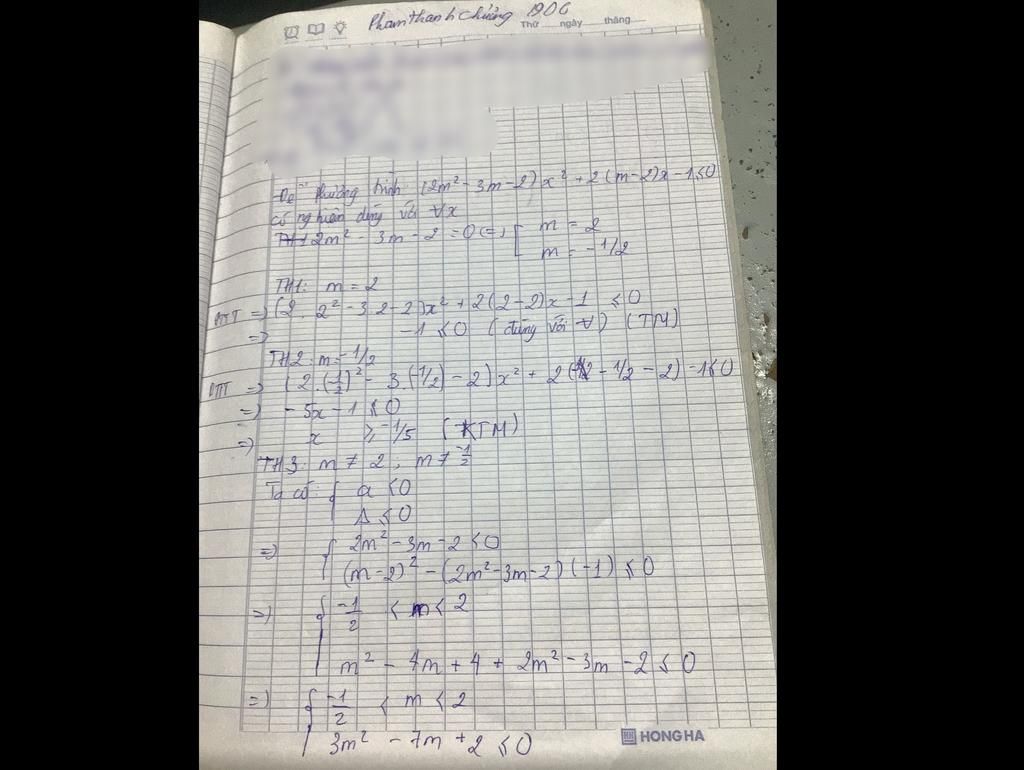 Phamthanh Chưởng 1906
Thứ ngày tháng
Để phương trình: (2m² - 3m - 2)x² + 2(m-2)x - 1 ≤ 0
có nghiệm đúng với ∀x
TH1 2m² - 3m - 2 = 0 (=) [ m = 2
m = -1/2
TH1: m = 2
=> (2. 2² - 3.2 - 2)x² + 2(2-2)x - 1 ≤ 0
=> -1 ≤ 0 (đúng với ∀) (TM)
TH2: m = -1/2
=> (2.(-1/2)² - 3.(-1/2) - 2)x² + 2( -1/2 - 2) - 1 ≤ 0
=> -5x - 1 ≤ 0
=> x ≥ -1/5 (KTM)
TH3: m ≠ 2; m ≠ -1/2
Ta có: { a < 0
Δ ≤ 0
=> { 2m² - 3m - 2 < 0
(m-2)² - (2m² - 3m - 2)(-1) ≤ 0
=> { -1/2 < m < 2
m² - 4m + 4 + 2m² - 3m - 2 ≤ 0
=> { -1/2 < m < 2
3m² - 7m + 2 ≤ 0
HONG HA